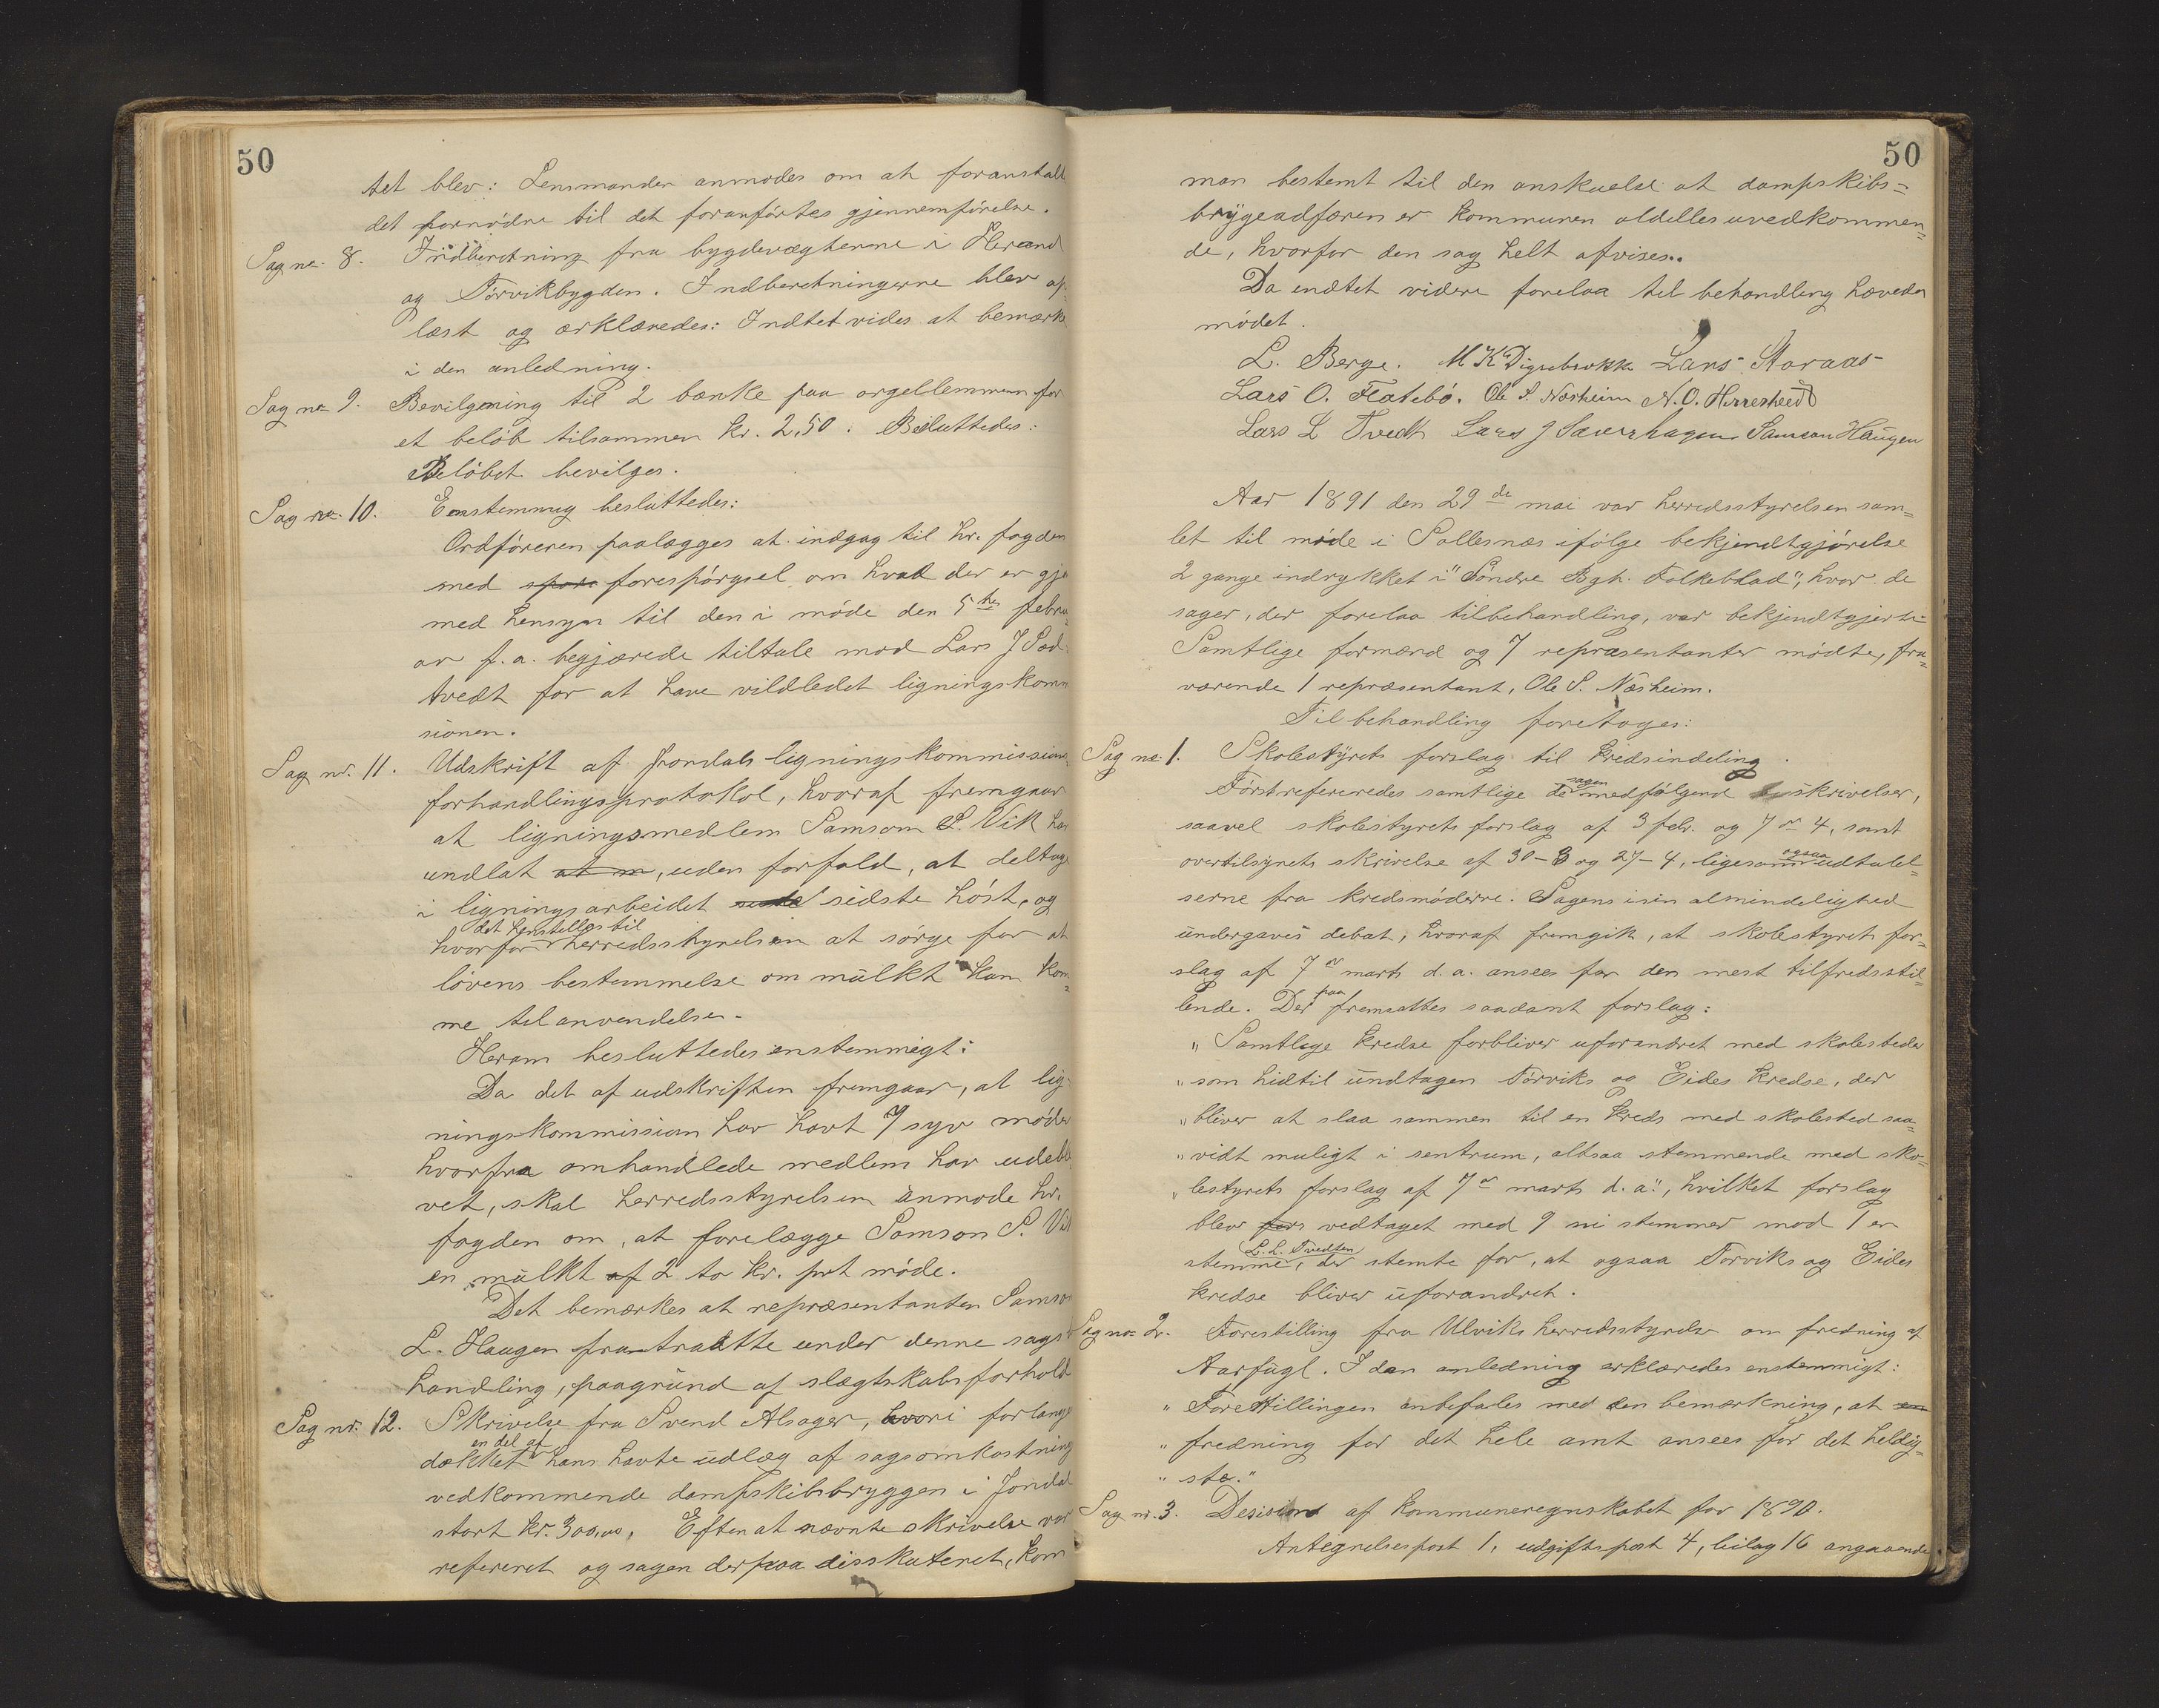 50
tet blev: Lensmanden anmodes om at foranstalt
det fornødne til det foranførtes gjennemførelse.
Sag nr. 8. Indberetning fra bygdevægterne i Herand
og Tørvikbygden. Indberetningerne blev op-
læst og erklæredes: Indtet vides at bemærke
i den anledning.
Sag nr. 9. Bevilgning til 2 bænke paa orgellemmen for
et beløb tilsammen kr. 2,50. Besluttedes:
Beløbet bevilges.
Sag nr. 10. Enstemmig besluttedes:
Ordføreren paalægges at indgaa til hr. fogden
med forespørgsel om hvad der er gjo
med hensyn til den i møde den 5te febru
ar f.a. begjærede tiltale mod Lars J Sød
tvedt for at have vildledet ligningskomm
sionen.
Sag nr. 11. Udskrift af Jondals ligningskommissions
forhandlingsprotokol, hvoraf fremgaar
at ligningsmedlem Samson S. Vik har
undlat at m, uden forfald, at deltage
i ligningsarbeidet sidste høst, og
det henstilles til
hvorfor herredsstyrelsen at sørge for at
lovens bestemmelse om mulkt kan kom=
me til anvendelse.
Herom besluttedes enstemmigt:
Da det af udskriften fremgaar, at lig
ningskommission har havt 7 syv møder
hvorfra omhandlede medlem har udeble
vet, skal herredsstyrelsen anmode hr.
fogden om, at forelægge Samson S. Vik
en mulkt af 2 to kr. prt møde.
Det bemærkes at repræsentanten Samson
L. Haugen fratraadte under denne sags
handling, paagrund af slægtskabsforhold
Sag nr. 12. Skrivelse fra Svend Alsager, hvori forlange
en del af
dækket hans havte udlæg af sagsomkostning
vedkommende dampskibsbryggen i Jondal
stort kr. 300,00. Efter at nævnte skrivelse var
refereret og sagen derpaa disskuteret, kom
50
man bestemt til den anskuelse at dampskibs=
bryggeadfæren er kommunen aldelles uvedkommen=
de, hvorfor den sag helt afvises.
Da indtet videre forelaa til behandling hævedes
mødet.
L. Berge. M K Digrebrokk Lars Storaas
Lars O. Flatebø. Ole S. Næsheim N. O. Herresheed
Lars L Tvedt Lars J Saverhagen Samson Haugen
Aar 1891 den 29de mai var herredsstyrelsen sam=
let til møde i Sallesnæs ifølge bekjendtgjørelse
2 gange indrykket i "Søndre Bgh. Folkeblad", hvor de
sager, der forelaa tilbehandling, var bekjendtgjorte.
Samtlige formænd og 7 repræsentanter mødte, fra=
værende 1 repræsentant, Ole S. Næsheim.
Til behandling foretages:
Sag nr. 1. Skolestyrets forslag til kredsindeling.
sagen
Førstrefereredes samtlige de medfølgend skrivelser,
saavel skolestyrets forslag af 3 febr. og 7 4, samt
ogsaa
overtilsynets skrivelse af 30-3 og 27-4, ligesom udtalel=
serne fra kredsmøderne. Sagens i sin almindelighed
undergaves debat, hvoraf fremgik, at skolestyrets for=
slag af 7de marts d.a. ansees for den mest tilfredsstil=
paa
lende. Der fremsattes saadant forslag:
" Samtlige kredse forbliver uforandret med skolesteder
" som hidtil undtagen Tørviks og Eides kredse, der
" bliver at slaa sammen til en kreds med skolested saa=
" vidt muligt i sentrum, altsaa stemmende med sko=
" lestyrets forslag af 7de marts d. a.", hvilket forslag
blev fors vedtaget med 9 ni stemmer mod 1 en
L. L. Tvedten
stemme, der stemte for, at ogsaa Tørviks og Eides
kredse bliver uforandret.
Sag nr. 2. Forestilling fra Ulviks herredsstyrelse om fredning af
Aarfugl. I den anledning erklæredes enstemmigt:
" Forestillingen anbefales med den bemærkning, at en
" fredning for det hele amt ansees for det heldig=
" ste."
Sag nr. 3. Desision af kommuneregnskabet for 1890.
Antegnelsespost 1, udgiftspost 4, bilag 16 angaaende